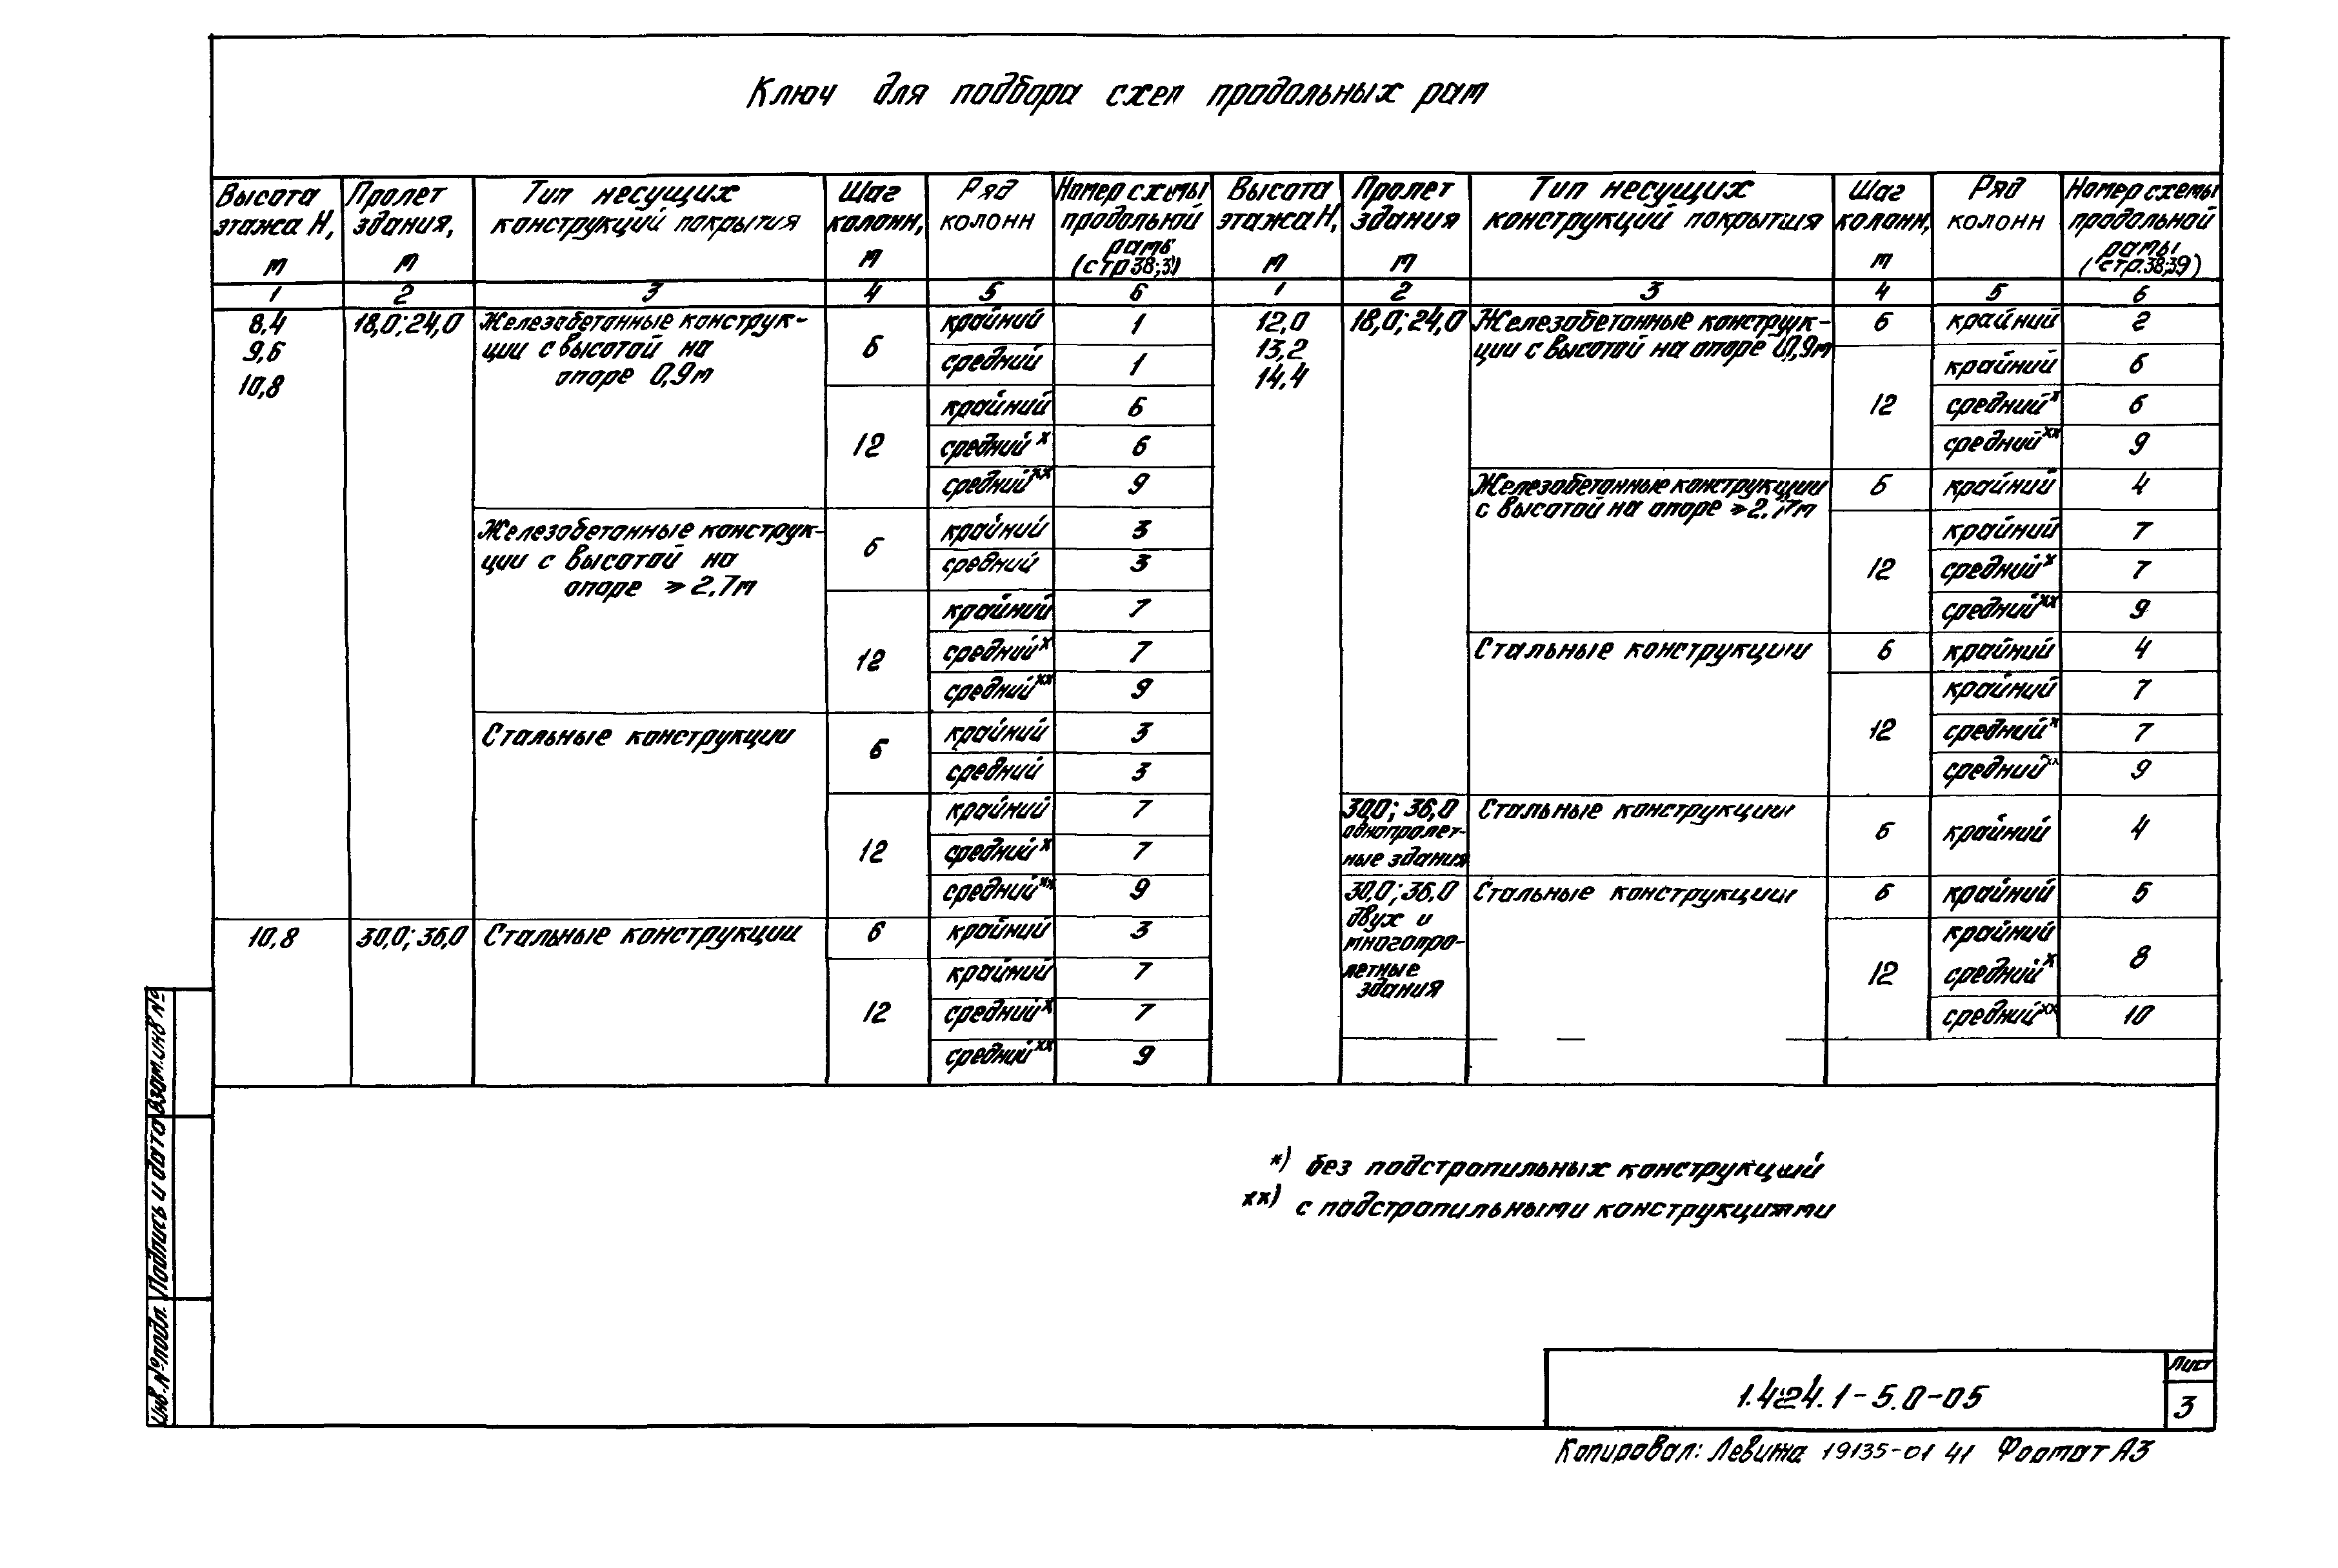 Ключ для подбора схем продольных рам
Высота этажа Н, м
Пролет здания, м
Тип несущих конструкций покрытия
Шаг колонн, м
Ряд колонн
Номер схемы продольной рамы (стр 38;3)
Высота этажа Н, м
Пролет здания м
Тип несущих конструкций покрытия
Шаг колонн, м
Ряд колонн
Номер схемы продольной рамы (стр.38;39)
1 2 3 4 5 6 1 2 3 4 5 6
8,4
9,6
10,8
18,0; 24,0
Железобетонные конструк-
ции с высотой на
опоре 0,9м
6
крайний 1
средний 1
12
крайний 6
средний x 6
средний xx 9
Железобетонные конструк-
ции с высотой на
опоре ⩾ 2,7м
6
крайний 3
средний 3
12
крайний 7
средний x 7
средний xx 9
Стальные конструкции
6
крайний 3
средний 3
12
крайний 7
средний x 7
средний xx 9
10,8
30,0; 36,0
Стальные конструкции
6
крайний 3
12
крайний 7
средний x 7
средний xx 9
12,0
13,2
14,4
18,0; 24,0
Железобетонные конструк-
ции с высотой на опоре 0,9м
6
крайний 2
12
крайний 6
средний x 6
средний xx 9
Железобетонные конструкции
с высотой на опоре ⩾2,7м
6
крайний 4
12
крайний 7
средний x 7
средний xx 9
Стальные конструкции
6
крайний 4
12
крайний 7
средний x 7
средний xx 9
30,0; 36,0
однопролет-
ные здания
Стальные конструкции
6
крайний 4
30,0; 36,0
двух и
многопро-
летные
здания
Стальные конструкции
6
крайний 5
12
крайний
средний x
8
средний xx 10
x) без подстропильных конструкций
xx) с подстропильными конструкциями
Взам.инв №
Подпись и дата
Инв.№подл.
1.424.1-5.0-05
Лист
3
Копировал: 19135-01 41 Формат А3